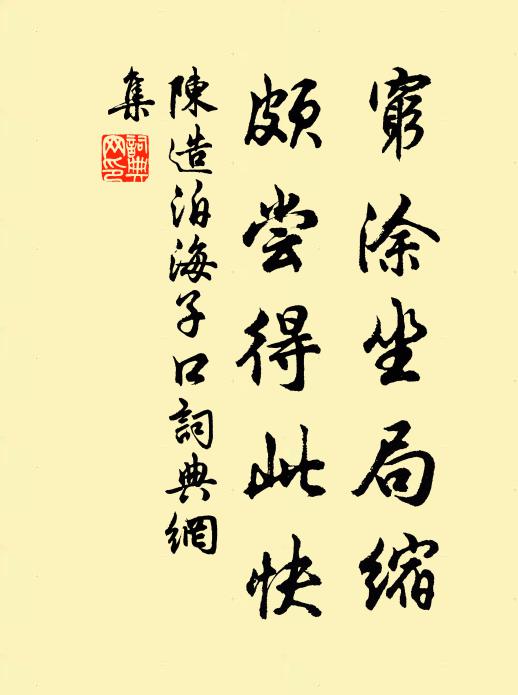 窮涂坐局縮
頗尝得此快
陳造泊海子口詞典網
集
詞典
网印